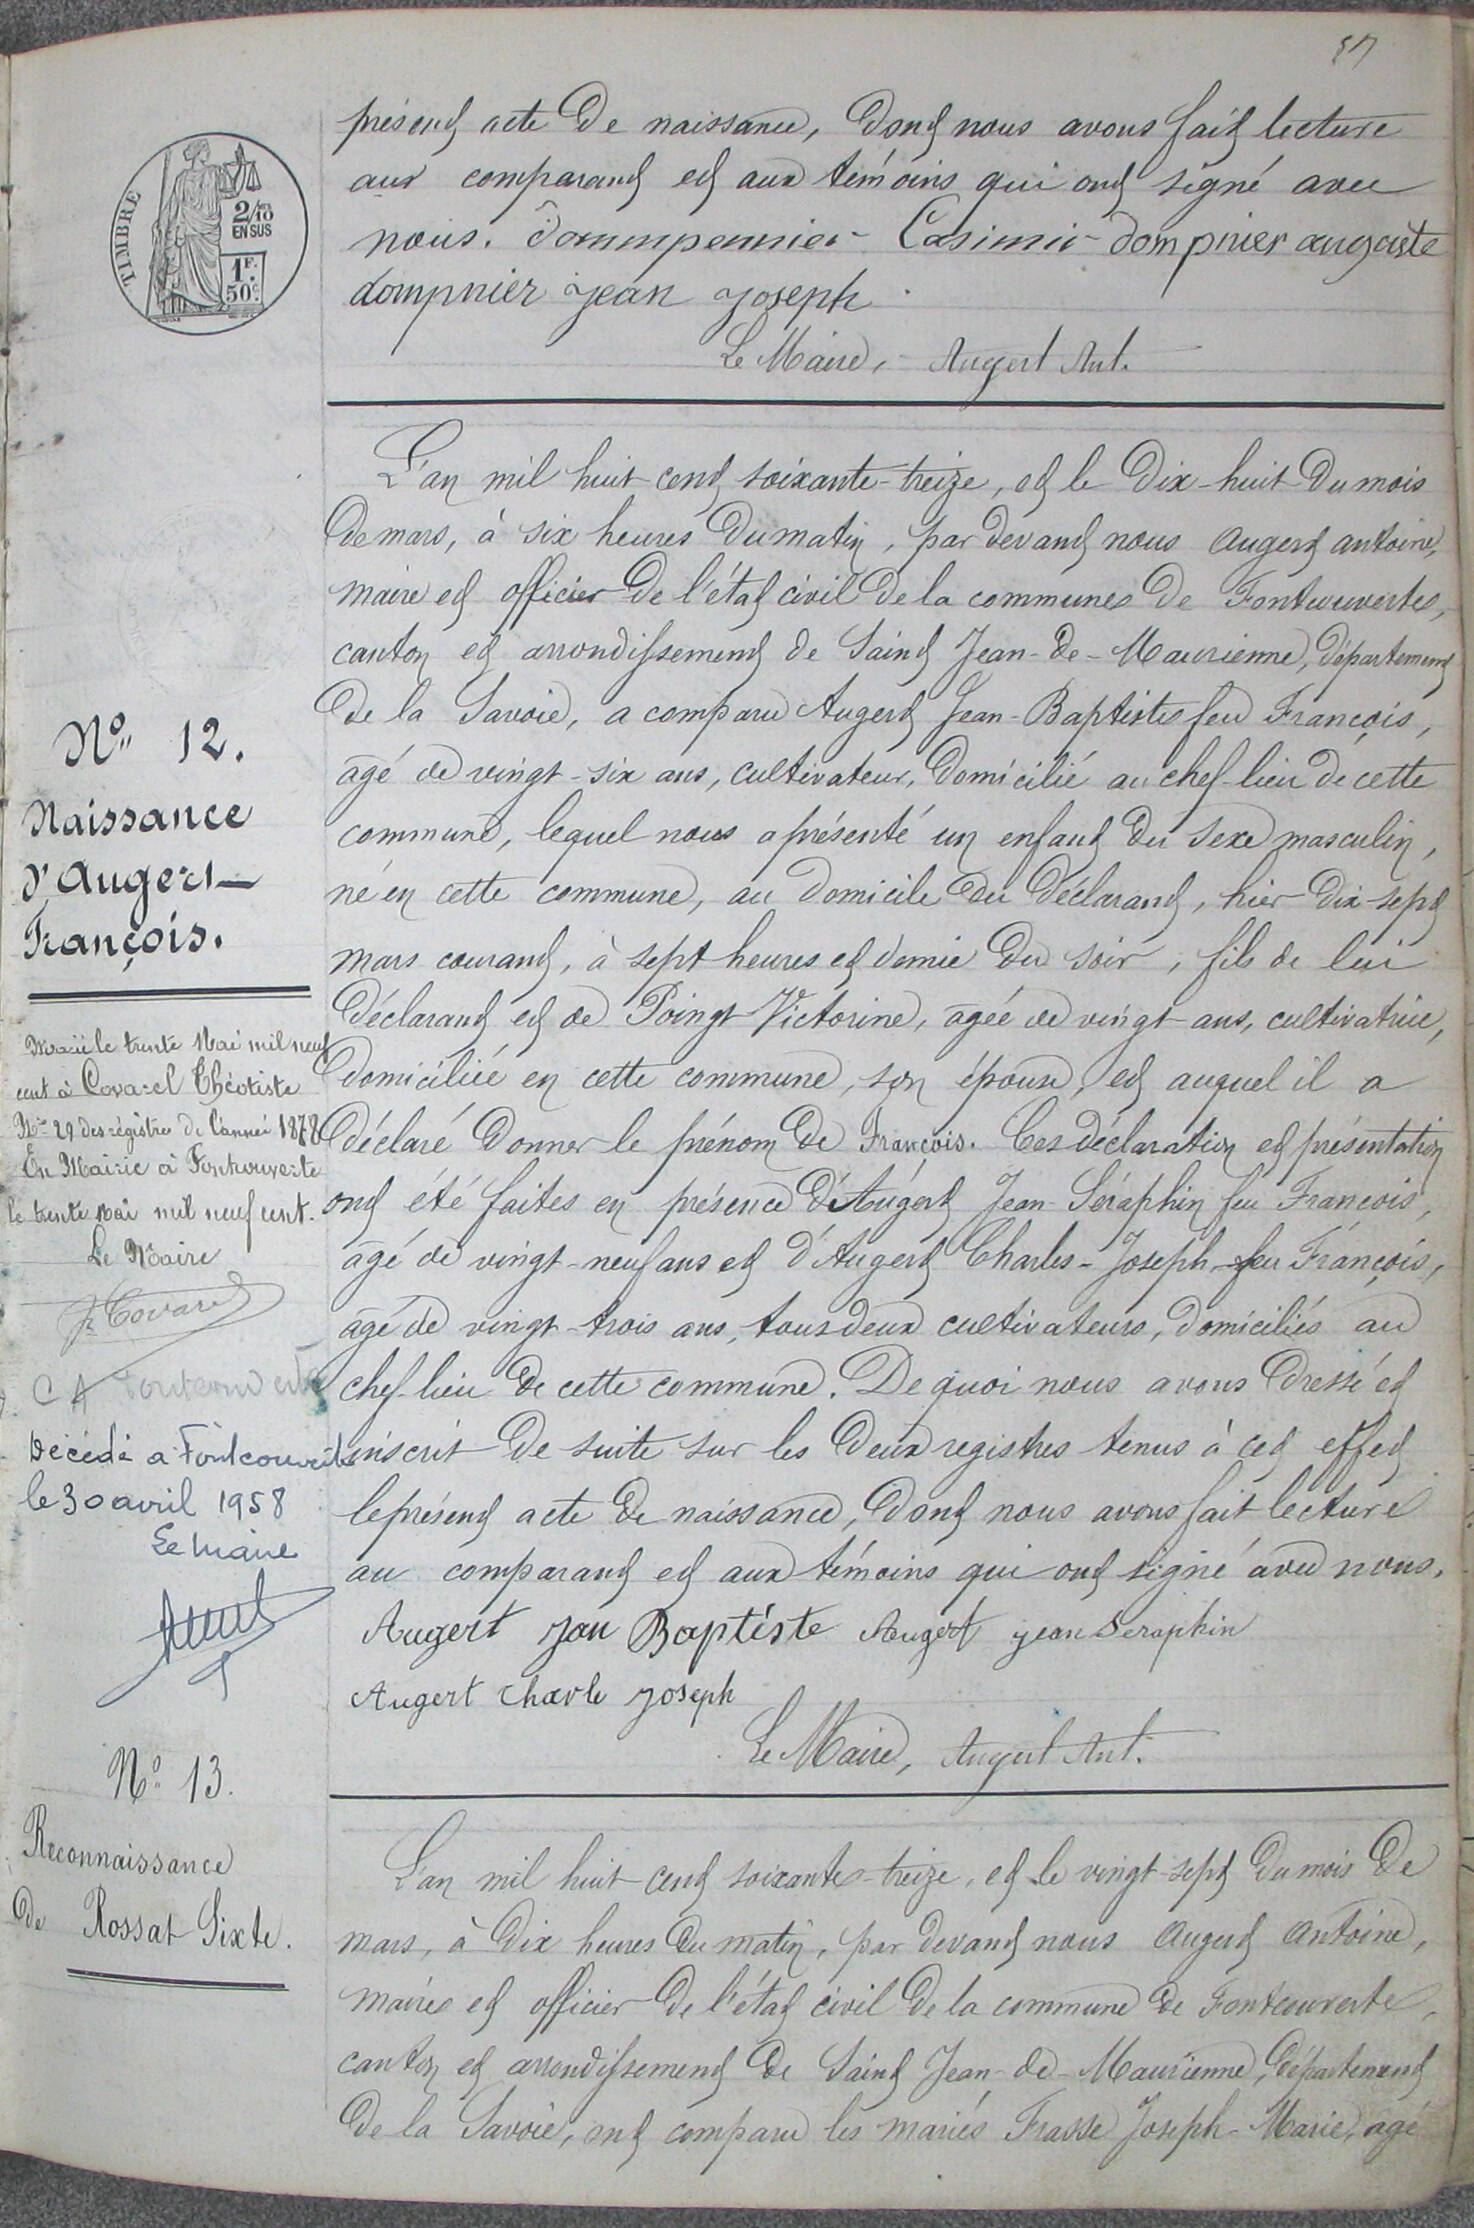 57
TIMBRE
2/10 EN SUS
1F. 50c
présent acte de naissance, dont nous avons fait lecture
aux comparant et aux témoins qui ont signé avec
nous. dommpennier Casimir dompnier auguste
dompnier jean joseph
Le Maire, Augert Ant.
No 12.
Naissance
d'Augert
François.
L'an mil huit cent soixante-treize, et le dix-huit du mois
de mars, à six heures du matin, par devant nous Augert antoine,
maire et officier de l'état civil de la commune de Fontcouverte,
canton et arrondissement de Saint Jean-de-Maurienne, département
de la Savoie, a comparu Augert Jean-Baptiste feu François,
âgé de vingt-six ans, cultivateur, domicilié au chef-lieu de cette
commune, lequel nous a présenté un enfant du sexe masculin,
né en cette commune, au domicile du déclarant, hier dix-sept
mars courant, à sept heures et demie du soir, fils de lui
déclarant et de Poingt Victorine, âgée de vingt ans, cultivatrice,
domiciliée en cette commune, son épouse, et auquel il a
déclaré donner le prénom de François. Ces déclaration et présentation
ont été faites en présence d'Augert Jean-Séraphin feu François,
âgé de vingt-neuf ans et d'Augert Charles-Joseph feu François,
âgé de vingt-trois ans, tous deux cultivateurs, domiciliés au
chef-lieu de cette commune. De quoi nous avons dressé et
inscrit de suite sur les deux registres tenus à cet effet
le présent acte de naissance, dont nous avons fait lecture
au comparant et aux témoins qui ont signé avec nous.
Augert jan Baptiste Augert jean Seraphin
Augert charle joseph
Le Maire, Augert Ant.
Marié le trente Mai mil neuf
cent à Covarel Théotiste
No 29 des régistres de l'année 1878
En Mairie à Fontcouverte
le trente Mai mil neuf cent.
Le Maire
Covarel
Fontcouverte
Décédé à Fontcouverte
le 30 avril 1958
Le maire
No 13.
Reconnaissance
de Rossat Sixte.
L'an mil huit cent soixante-treize, et le vingt-sept du mois de
mars, à dix heures du matin, par devant nous Augert Antoine,
maire et officier de l'état civil de la commune de Fontcouverte,
canton et arrondissement de Saint Jean-de-Maurienne, département
de la Savoie, ont comparu les mariés Frasse Joseph-Marie, âgé